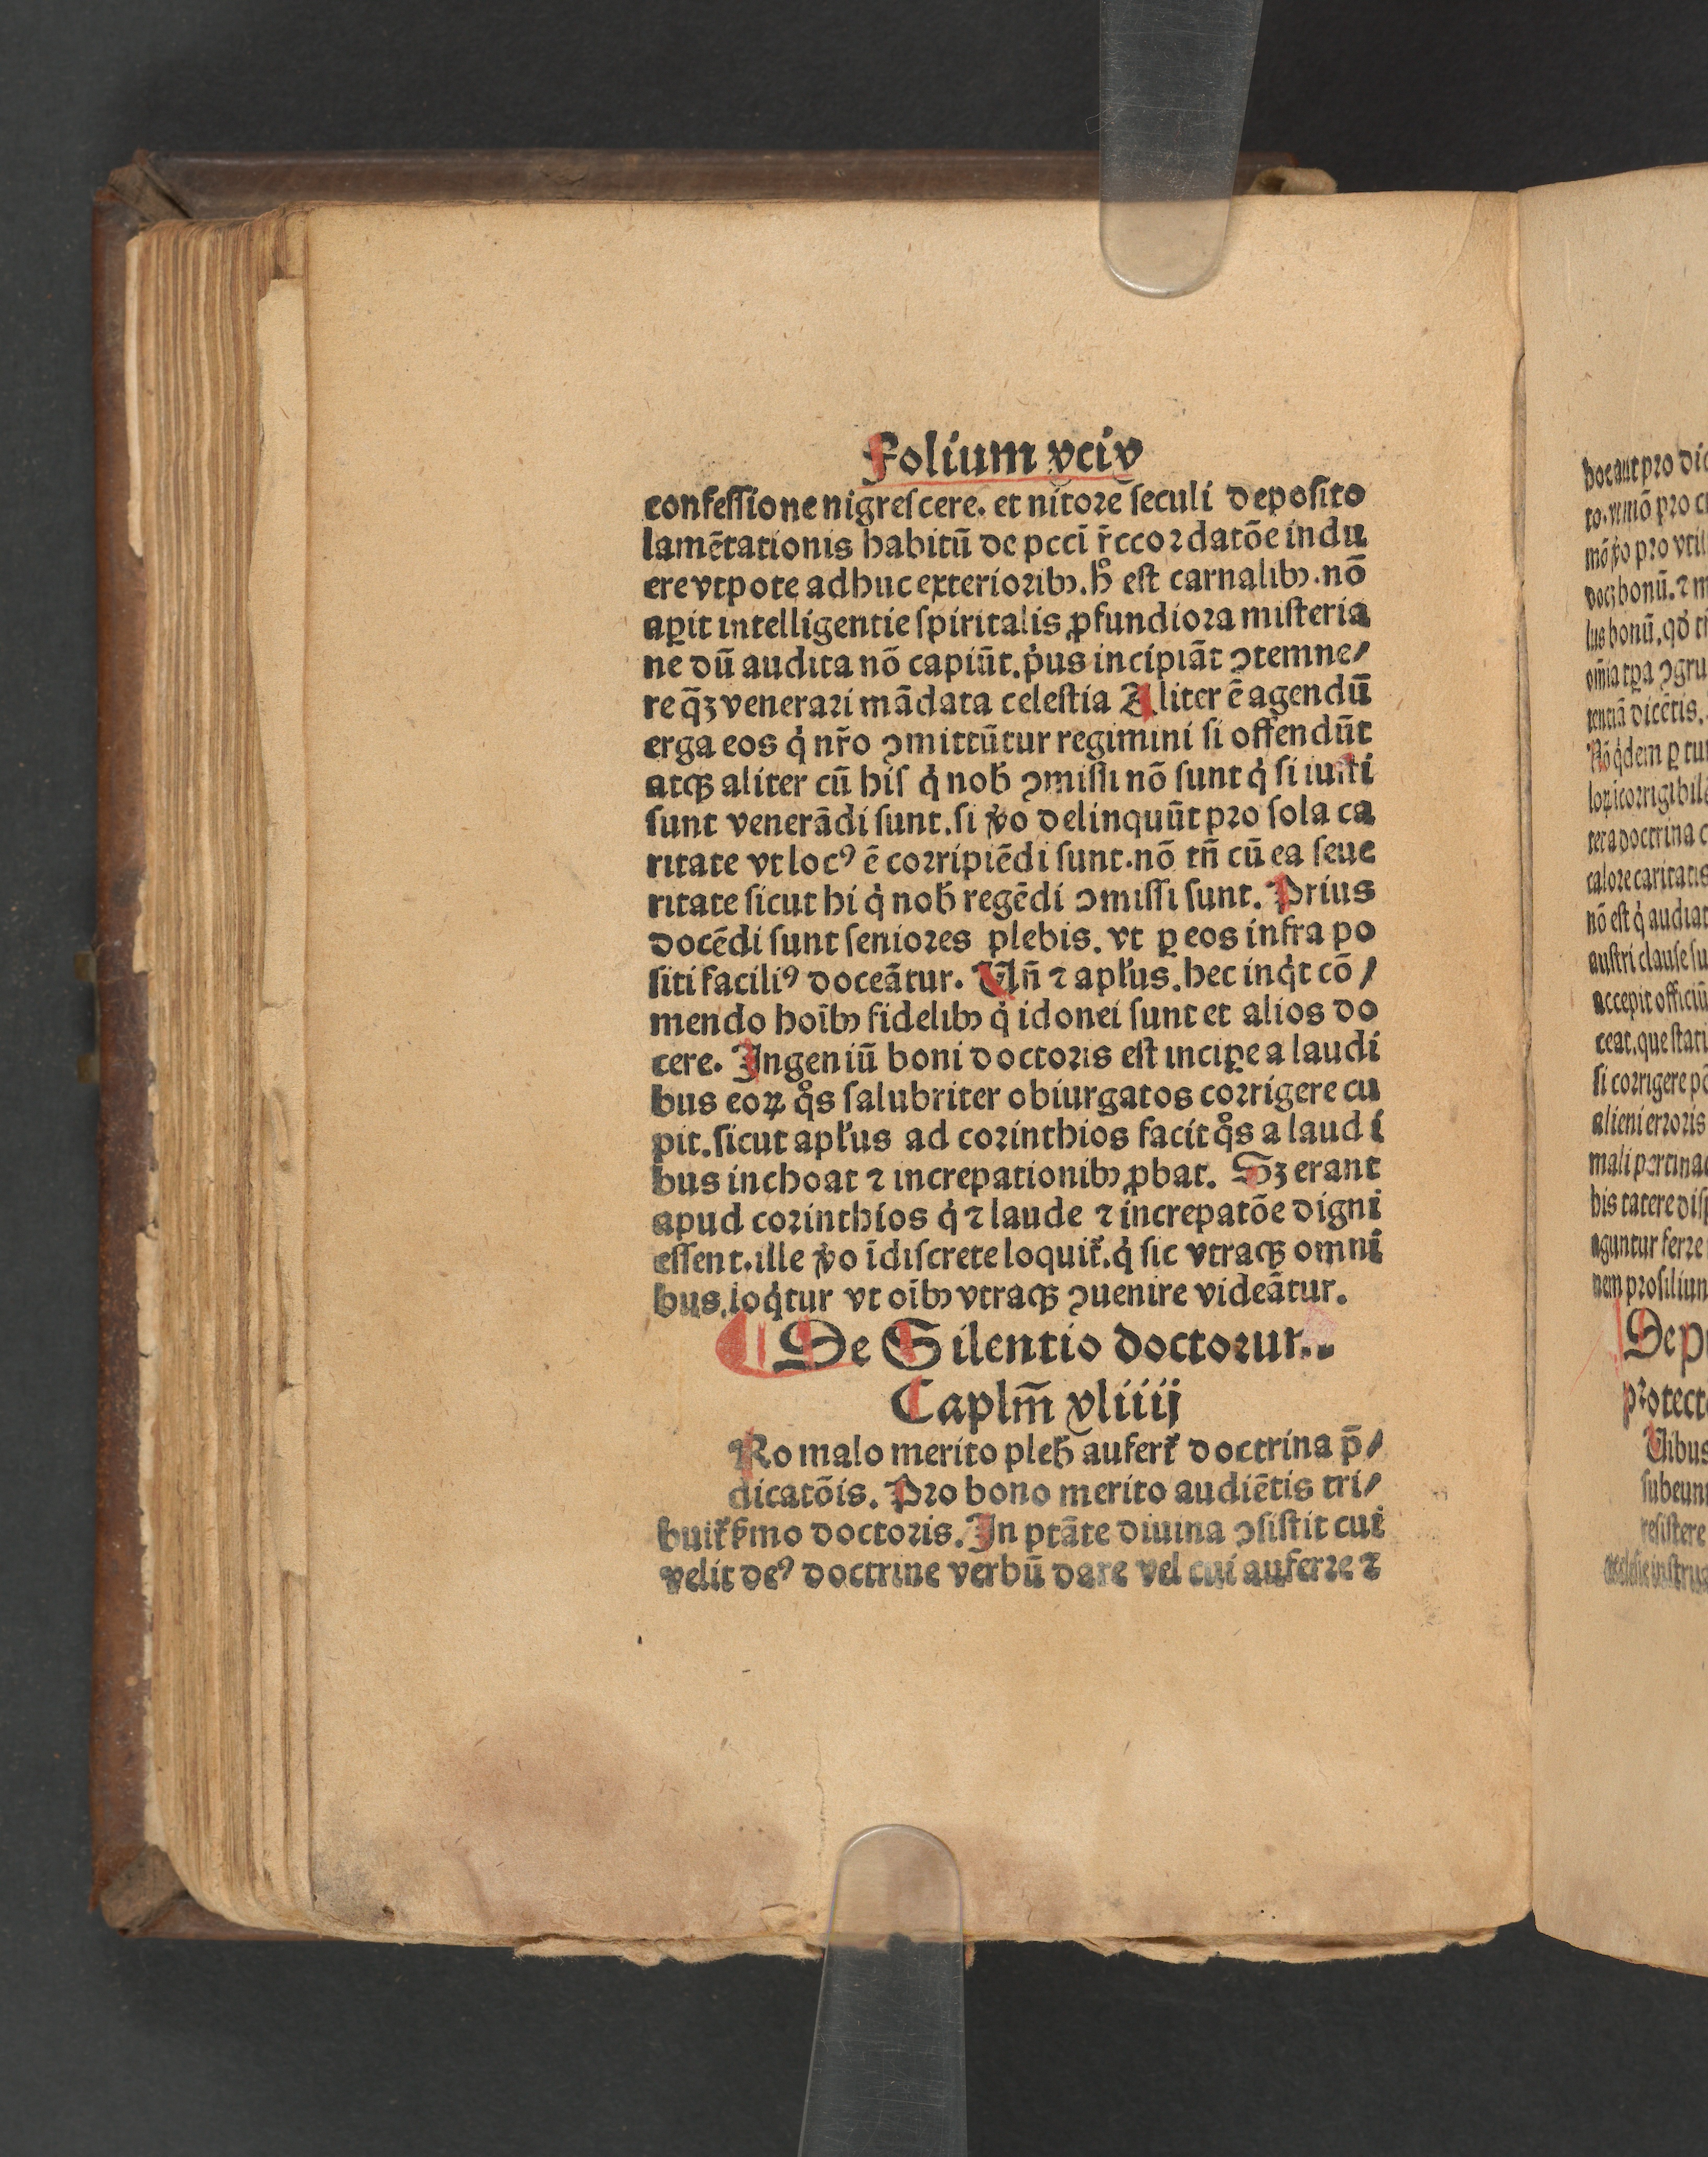 Folium xciv
confessione nigrescere. et nitorē seculi deposito
lamētationis habitū de pccī r̄ccordatōe indu
ere vtpote adhuc exterioribꝫ. hͦ est carnalibꝫ. nō
aꝑit intelligentie spiritalis ꝓfundiora misteria
ne dū audita nō capiūt. pͥus incipiāt ↄtemne/
re q̄ꝫ venerari mādata celestia Aliter ē agendū
erga eos qͥ nr̄o ↄmittūtur regimini si offendūt
atqꝫ aliter cū his qͥ nob̄ ↄmissi nō sunt qͥ si iusti
sunt venerādi sunt. si v̓o delinquūt pro sola ca
ritate vt locꝰ ē corripiēdi sunt. nō tn̄ cū ea seue
ritate sicut hi qͥ nob̄ regēdi ↄmissi sunt. Prius
docēdi sunt seniores plebis. vt ꝑ eos infra po
siti faciliꝰ doceātur. Vn̄ ⁊ apl̓us. hec inqͥt cō/
mendo hoībꝫ fidelibꝫ qͥ idonei sunt et alios do
cere. Ingeniū boni doctoris est inciꝑe a laudi
bus eoꝝ qͦs salubriter obiurgatos corrigere cu
pit. sicut apl̓us ad corinthios facit qͦs a laudi
bus inchoat ⁊ increpationibꝫ ꝓbat. Sꝫ erant
apud corinthios qͥ ⁊ laude ⁊ increpatōe digni
essent. ille v̓o īdiscrete loquit̓. qͥ sic vtraqꝫ omni
bus. loqͥtur vt oībꝫ vtraqꝫ ↄuenire videātur.
De Silentio doctorum.
Caplm̄ xliiij
Ro malo merito pleb̄ aufert̓ doctrina p̄/
dicatōis. Pro bono merito audiētis tri/
buit̓ s̓mo doctoris. In ptāte diuina ↄsistit cui
velit deꝰ doctrine verbū dare vel cui auferre ⁊